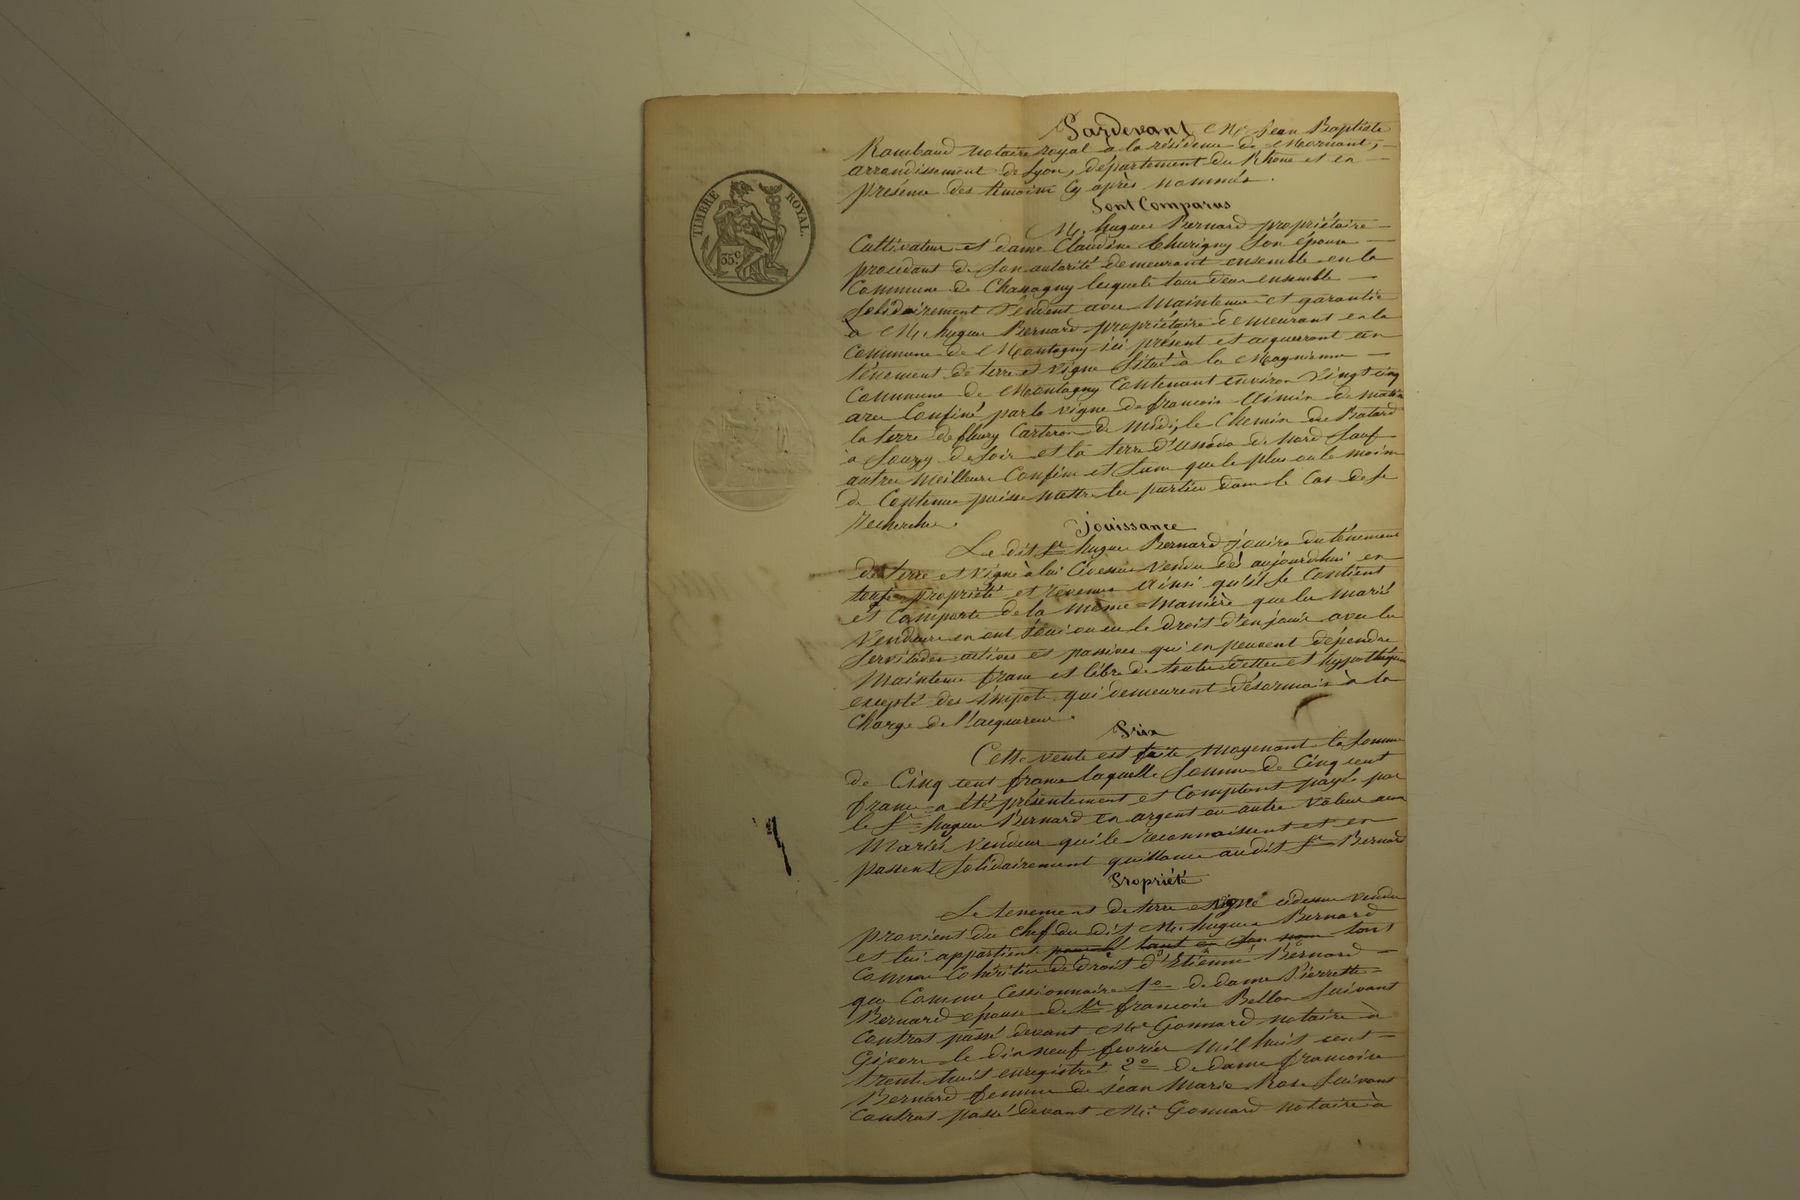 Pardevant Me Jean Baptiste
Rambaud notaire royal à la résidence de Mornant,
arrondissement de Lyon, département du Rhône et en
présence des témoins cy après nommés.
Sont Comparus
TIMBRE ROYAL.
35c
Mr hugue Bernard propriétaire
Cultivateur et dame Claudine Churigny Son épouse
procédant de Son autorité demeurant ensemble en la
Commune de Chassagny lesquels tous deux ensemble
Solidairement Vendent avec Maintenue et garantie
à Mr hugue Bernard propriétaire demeurant en la
Commune de Montagny ici présent et acquerront un
tènement de terre et vigne Situé à la Magnienne
Commune de Montagny Contenant environ Vingt cinq
ares Confiné par la vigne de françois Aimin de matin
la terre de fleury Carteron de Midi, le Chemin du Batard
à Sourzy de Soir et la terre d' de Nord Sauf
autres Meilleurs Confins et Sans que le plus ou le moins
de Contenue puisse Mettre les parties dans le Cas de Se
Recherche.
Jouissance
Le dit Sr hugue Bernard jouira du tènement
de terre et Vigne à lui Cidessus Vendu dès aujourdhui en
toute propriété et revenus Ainsi qu'il Se Contient
et Comporte de la même Manière que les Mariés
Vendeurs en ont joui ou eu le droit d'en jouir avec les
Servitudes actives et passives qui en peuvent dépendre
Maintenu franc et libre de toutes dettes et hypothèques
excepté des Impots qui demeurent désormais à la
Charge de l'acquéreur.
Prix
Cette vente est faite Moyenant la Somme
de Cinq cent francs laquelle Somme de Cinq cent
francs a été présentement et Comptant payée par
le Sr hugue Bernard en argent ou autre Valeur aux
Mariés Vendeurs qui le reconnaissent et en
passent Solidairement quittance au dit Sr Bernard
Propriété
Le tenement de terre et vigne cidessus vendu
provient du Chef du dit Mr hugue Bernard
et lui appartient tant en Son nom tant
Comme Cohéritier de droit d'Etienne Bernard
que Comme Cessionnaire 1o de dame Pierrette
Bernard épouse de Sr françois Bellon Suivant
Contrat passé devant Me Gonnard notaire à
Givors le dix neuf fevrier Mil huit cent
trente huit enregistré 2o de dame françoise
Bernard femme de Jean Marie Rose Suivant
Contrat passé devant Me Gonnard notaire à